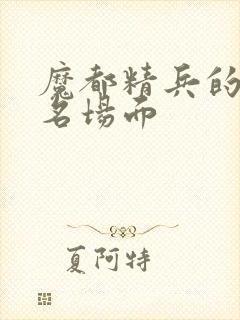 魔都精兵的
名場面
夏阿特